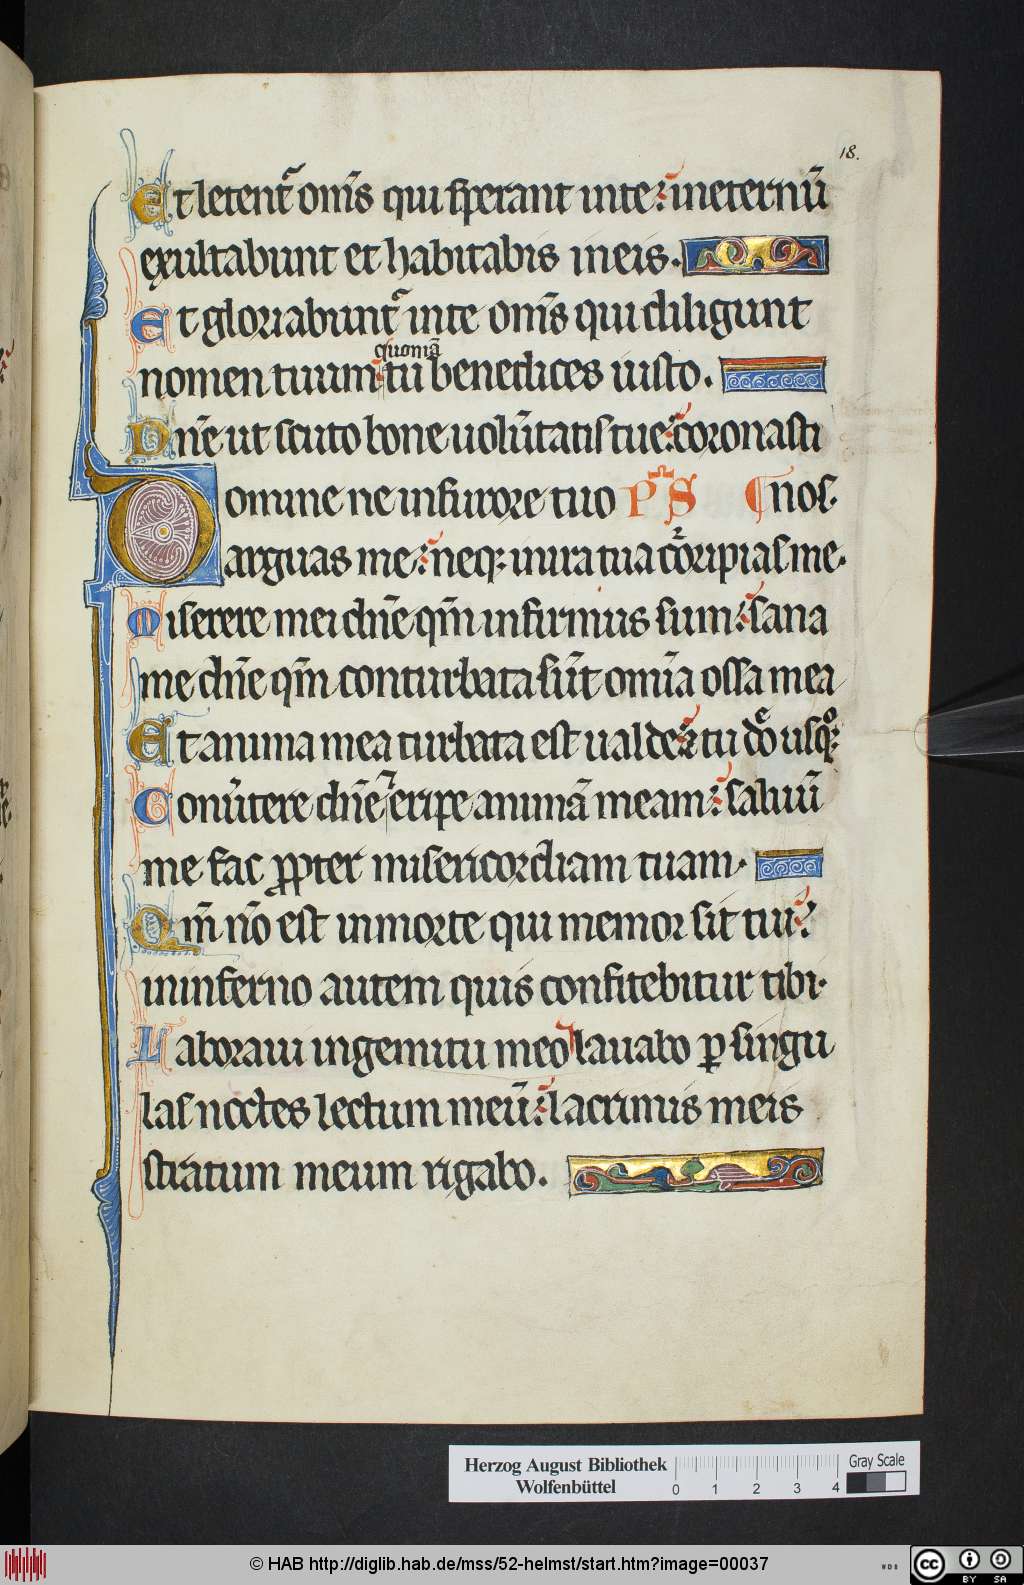 18.
Et letent᷑ om̄s qui sperant in te: in eternū
exultabunt et habitabis in eis.
Et gloriabunt᷑ in te om̄s qui diligunt
quoniā
nomen tuum: tu benedices iusto.
Dn̄e ut scuto bone uolūtatis tue: coronasti
omine ne in furore tuo PS nos.
D arguas me: neq; in ira tua corripias me.
Miserere mei dn̄e qm̄ infirmus sum: sana
me dn̄e qm̄ conturbata sūt om̄ia ossa mea
Et anima mea turbata est ualde: & tu dn̄e usq; quo:
Conūtere dn̄e & eripe animā meam: saluū
me fac ꝓpter misericordiam tuam.
Qm̄ nō est in morte qui memor sit tui:
in inferno autem quis confitebitur tibi.
Laboraui in gemitu meo lauabo ꝑ singu
las noctes lectum meū: lacrimis meis
stratum meum rigabo.
Herzog August Bibliothek
Wolfenbüttel
0 1 2 3 4
Gray Scale
© HAB http://diglib.hab.de/mss/52-helmst/start.htm?image=00037
WDB
cc BY SA